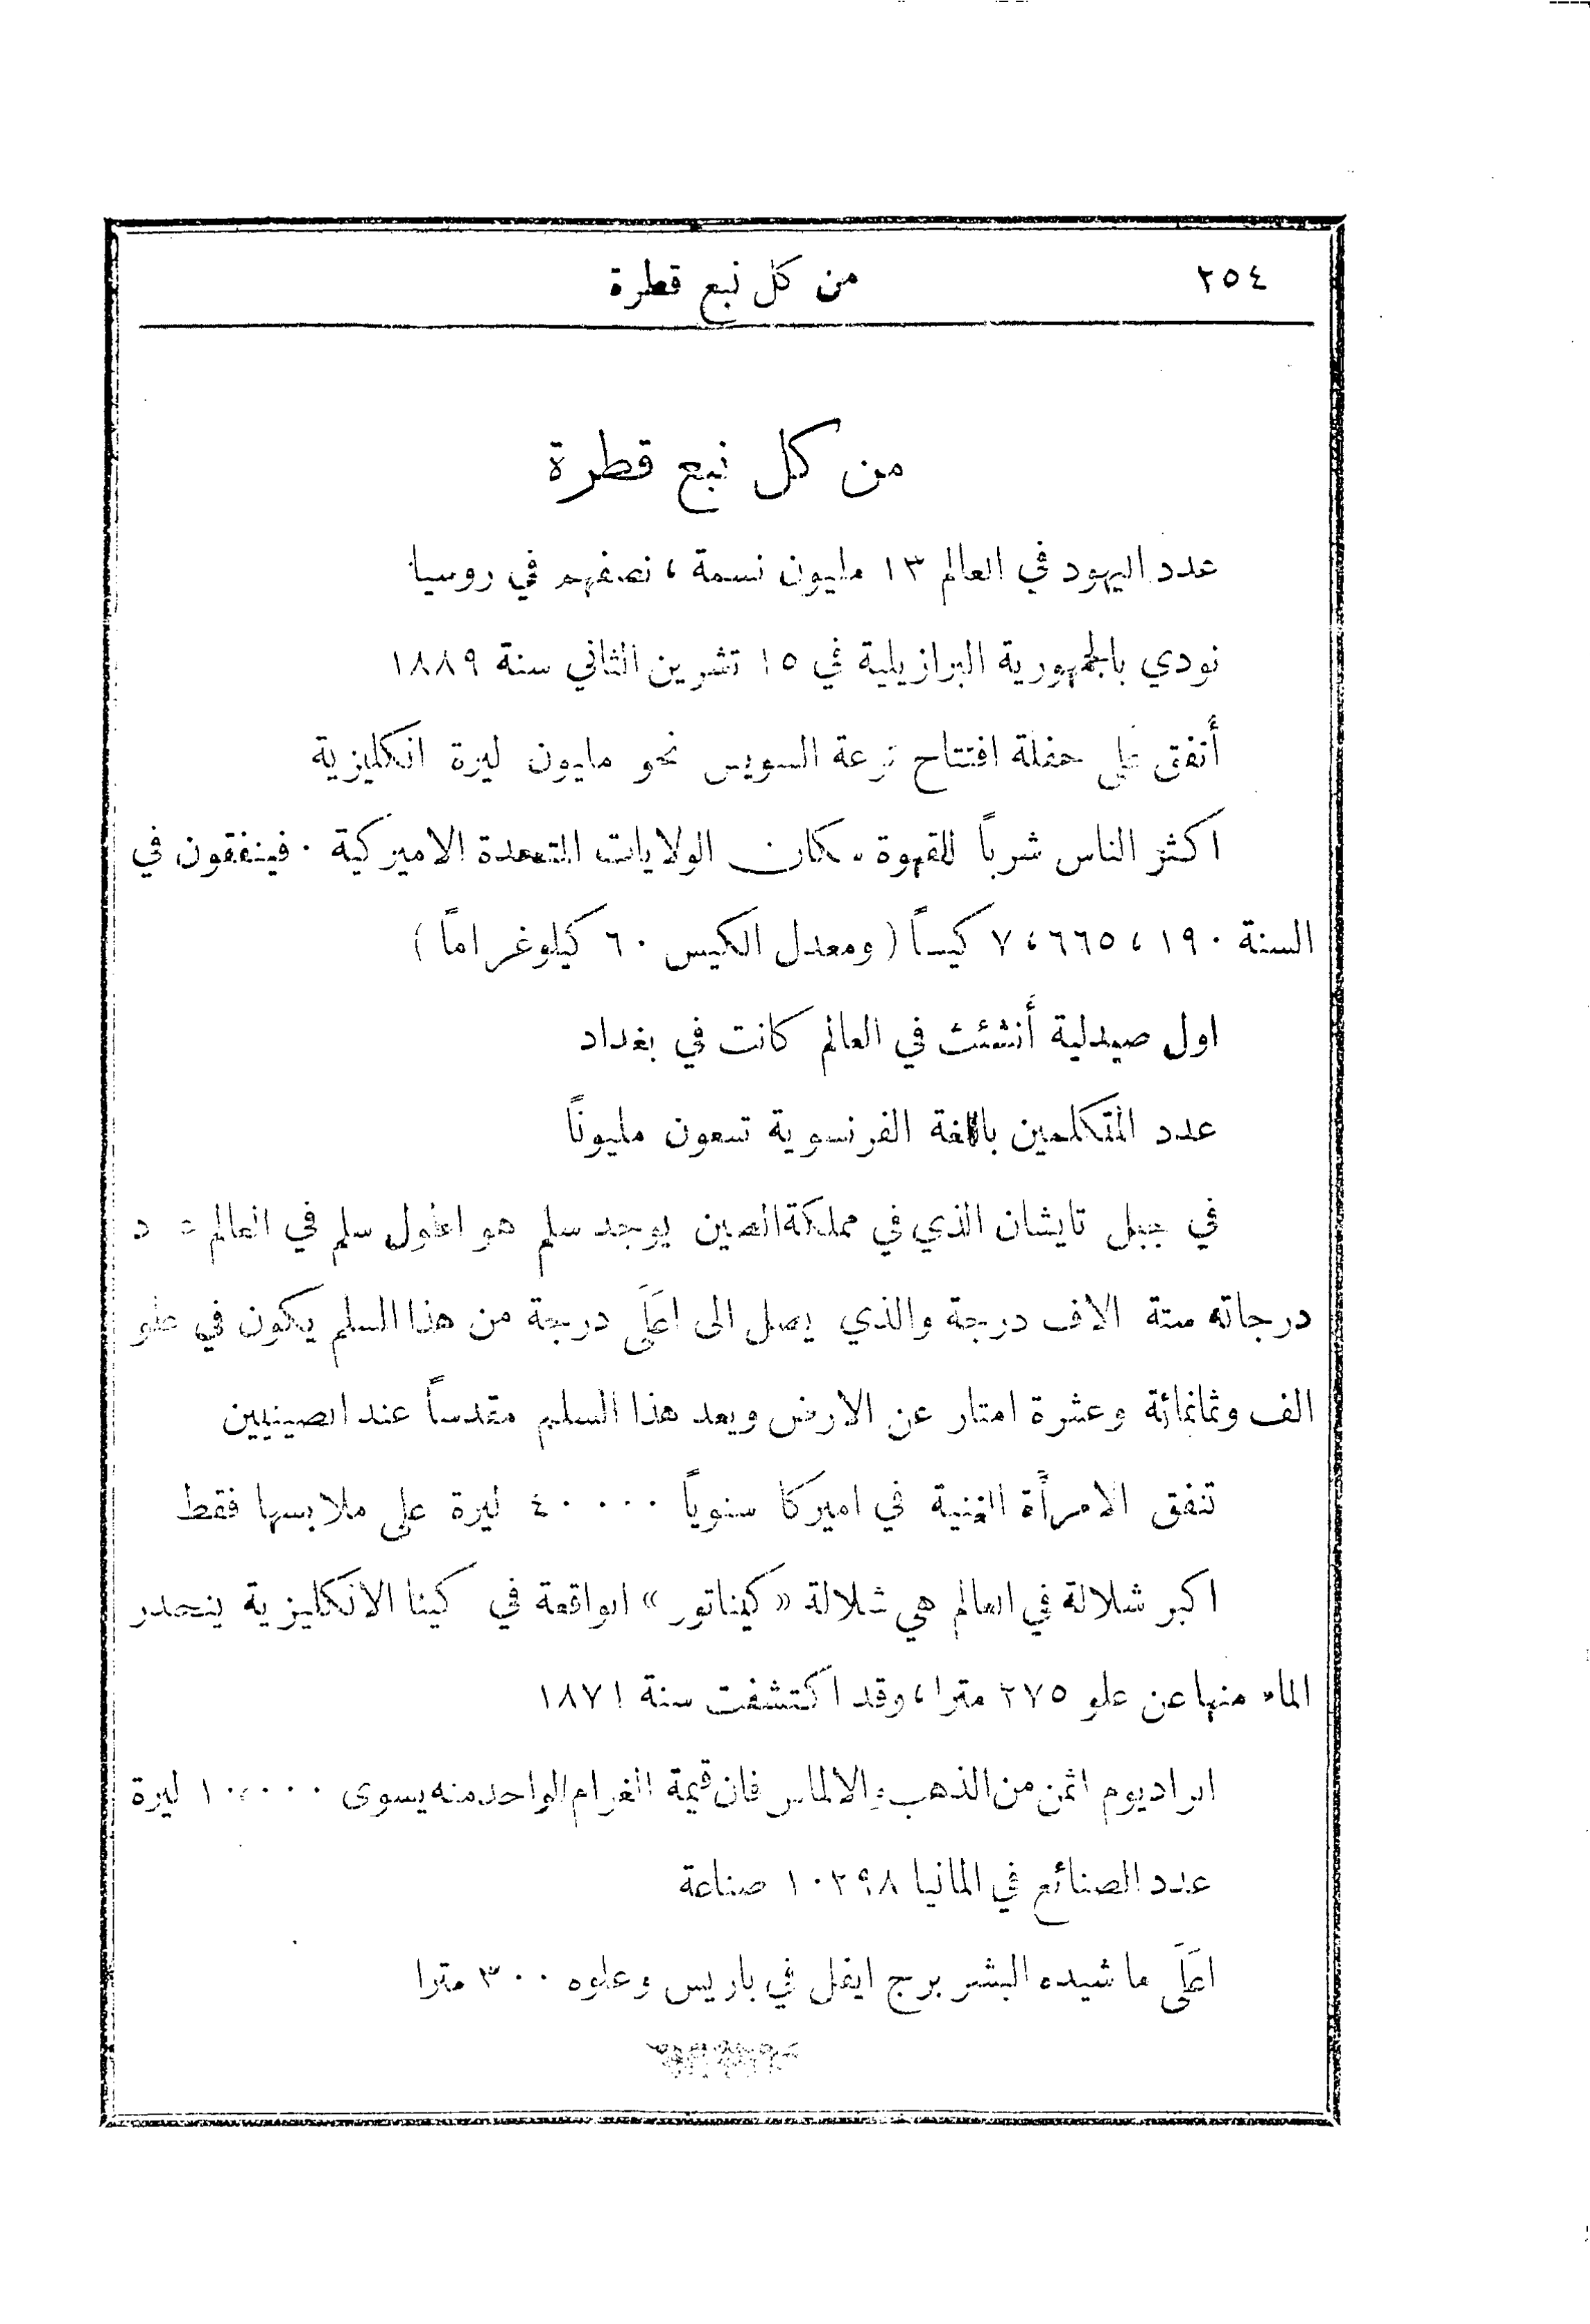 ٢٥٤
من كل نبع قطرة
من كل نبع قطرة
عدد اليهود في العالم ١٣ مليون نسمة ، نصفهم في روسيا
نودي بالجمهورية البرازيلية في ١٥ تشرين الثاني سنة ١٨٨٩
أنفق على حفلة افتتاح ترعة السويس نحو مليون ليرة انكليزية
اكثر الناس شرباً للقهوة سكان الولايات المتحدة الاميركية ٠ فينفقون في
السنة ١٩٠ ، ٦٦٥ ، ٧ كيساً ( ومعدل الكيس ٦٠ كيلوغراماً )
اول صيدلية أنشئت في العالم كانت في بغداد
عدد المتكلمين باللغة الفرنسوية تسعون مليوناً
في جبل تايشان الذي في مملكة الصين يوجد سلم هو اطول سلم في العالم
درجاته ستة الاف درجة والذي يصل الى اعلَى درجة من هذا السلم يكون في علو
الف وثمانمائة وعشرة امتار عن الارض ويعد هذا السلم مقدساً عند الصينيين
تنفق الامرأة الغنية في اميركا سنوياً ٤٠٠٠٠ ليرة على ملابسها فقط
اكبر شلالة في العالم هي شلالة « كيناتور » الواقعة في كينا الانكليزية ينحدر
الماء منها عن علو ٢٧٥ مترا ، وقد اكتشفت سنة ١٨٧١
الراديوم اثمن من الذهب والالماس فان قيمة الغرام الواحد منه يسوى ١٠،٠٠٠ ليرة
عدد الصنائع في المانيا ١٠٢٩٨ صناعة
اعلَى ما شيده البشر برج ايفل في باريس وعلوه ٣٠٠ مترا